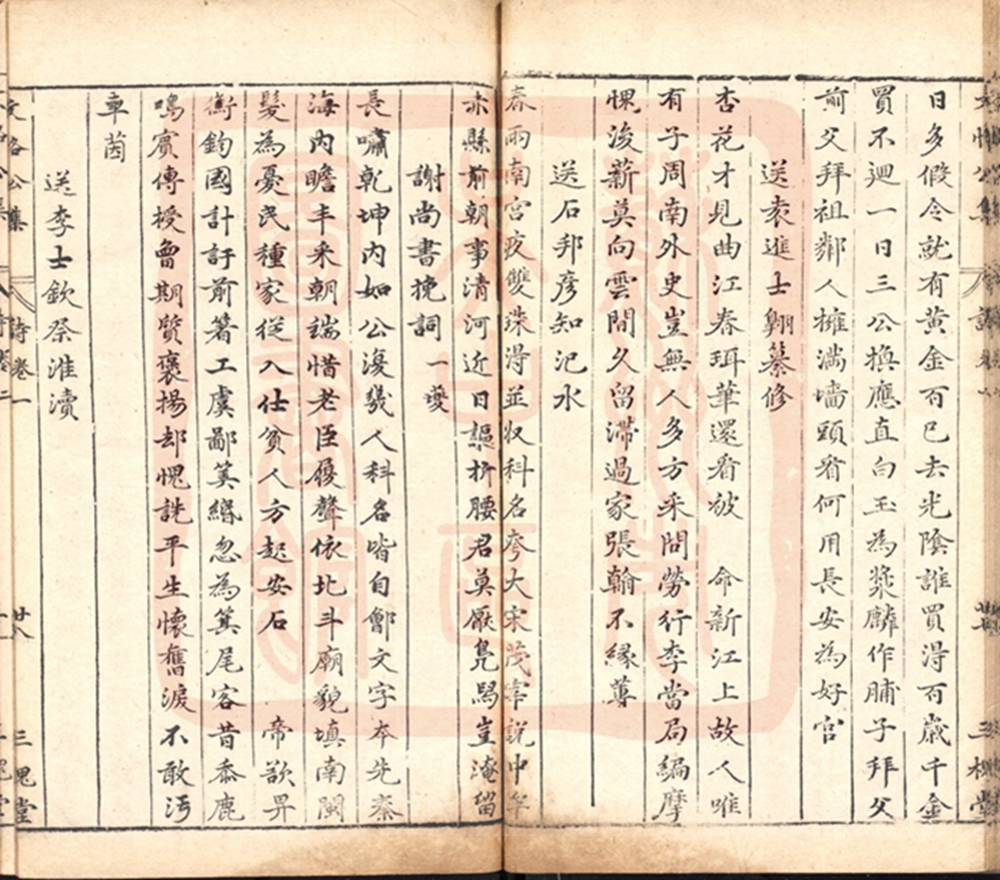 日多假令就有黄金百已去光陰誰買淂百歲千金
買不迴一日三公換應直白玉為漿麟作脯子拜父
前父拜祖鄰人擁滿墻頭看何用長安為好官
送袁進士翺纂修
杏花才見曲江春珥華還看被 命新江上故人唯
有子周南外史豈無人多方采問勞行李當局編摩
愧浚薪莫向雲間久留滯過家張翰不緣蓴
送石邦彦知汜水
春雨南宫夜雙珠淂並収科名齊大宋茂宰説中牟
赤縣前朝事清河近日謳折腰君莫厭鳧舄豈淹留
謝尚書挽詞一變
長嘯乾坤内如公復幾人科名皆自鄶文字夲先秦
海内瞻丰采朝端惜老臣履聲依北斗廟貌填南閩
髮為憂民種家從入仕貧人方起安石 帝欲畀
衡鈞國計訏前箸工虞鄙箕緡忽為箕尾客昔忝鹿
鳴賓傳授曾期贊褒揚却愧詵平生懷舊淚不敢汚
車茵
送李士欽祭淮瀆
文 公集
詩卷一
廿八
三槐堂